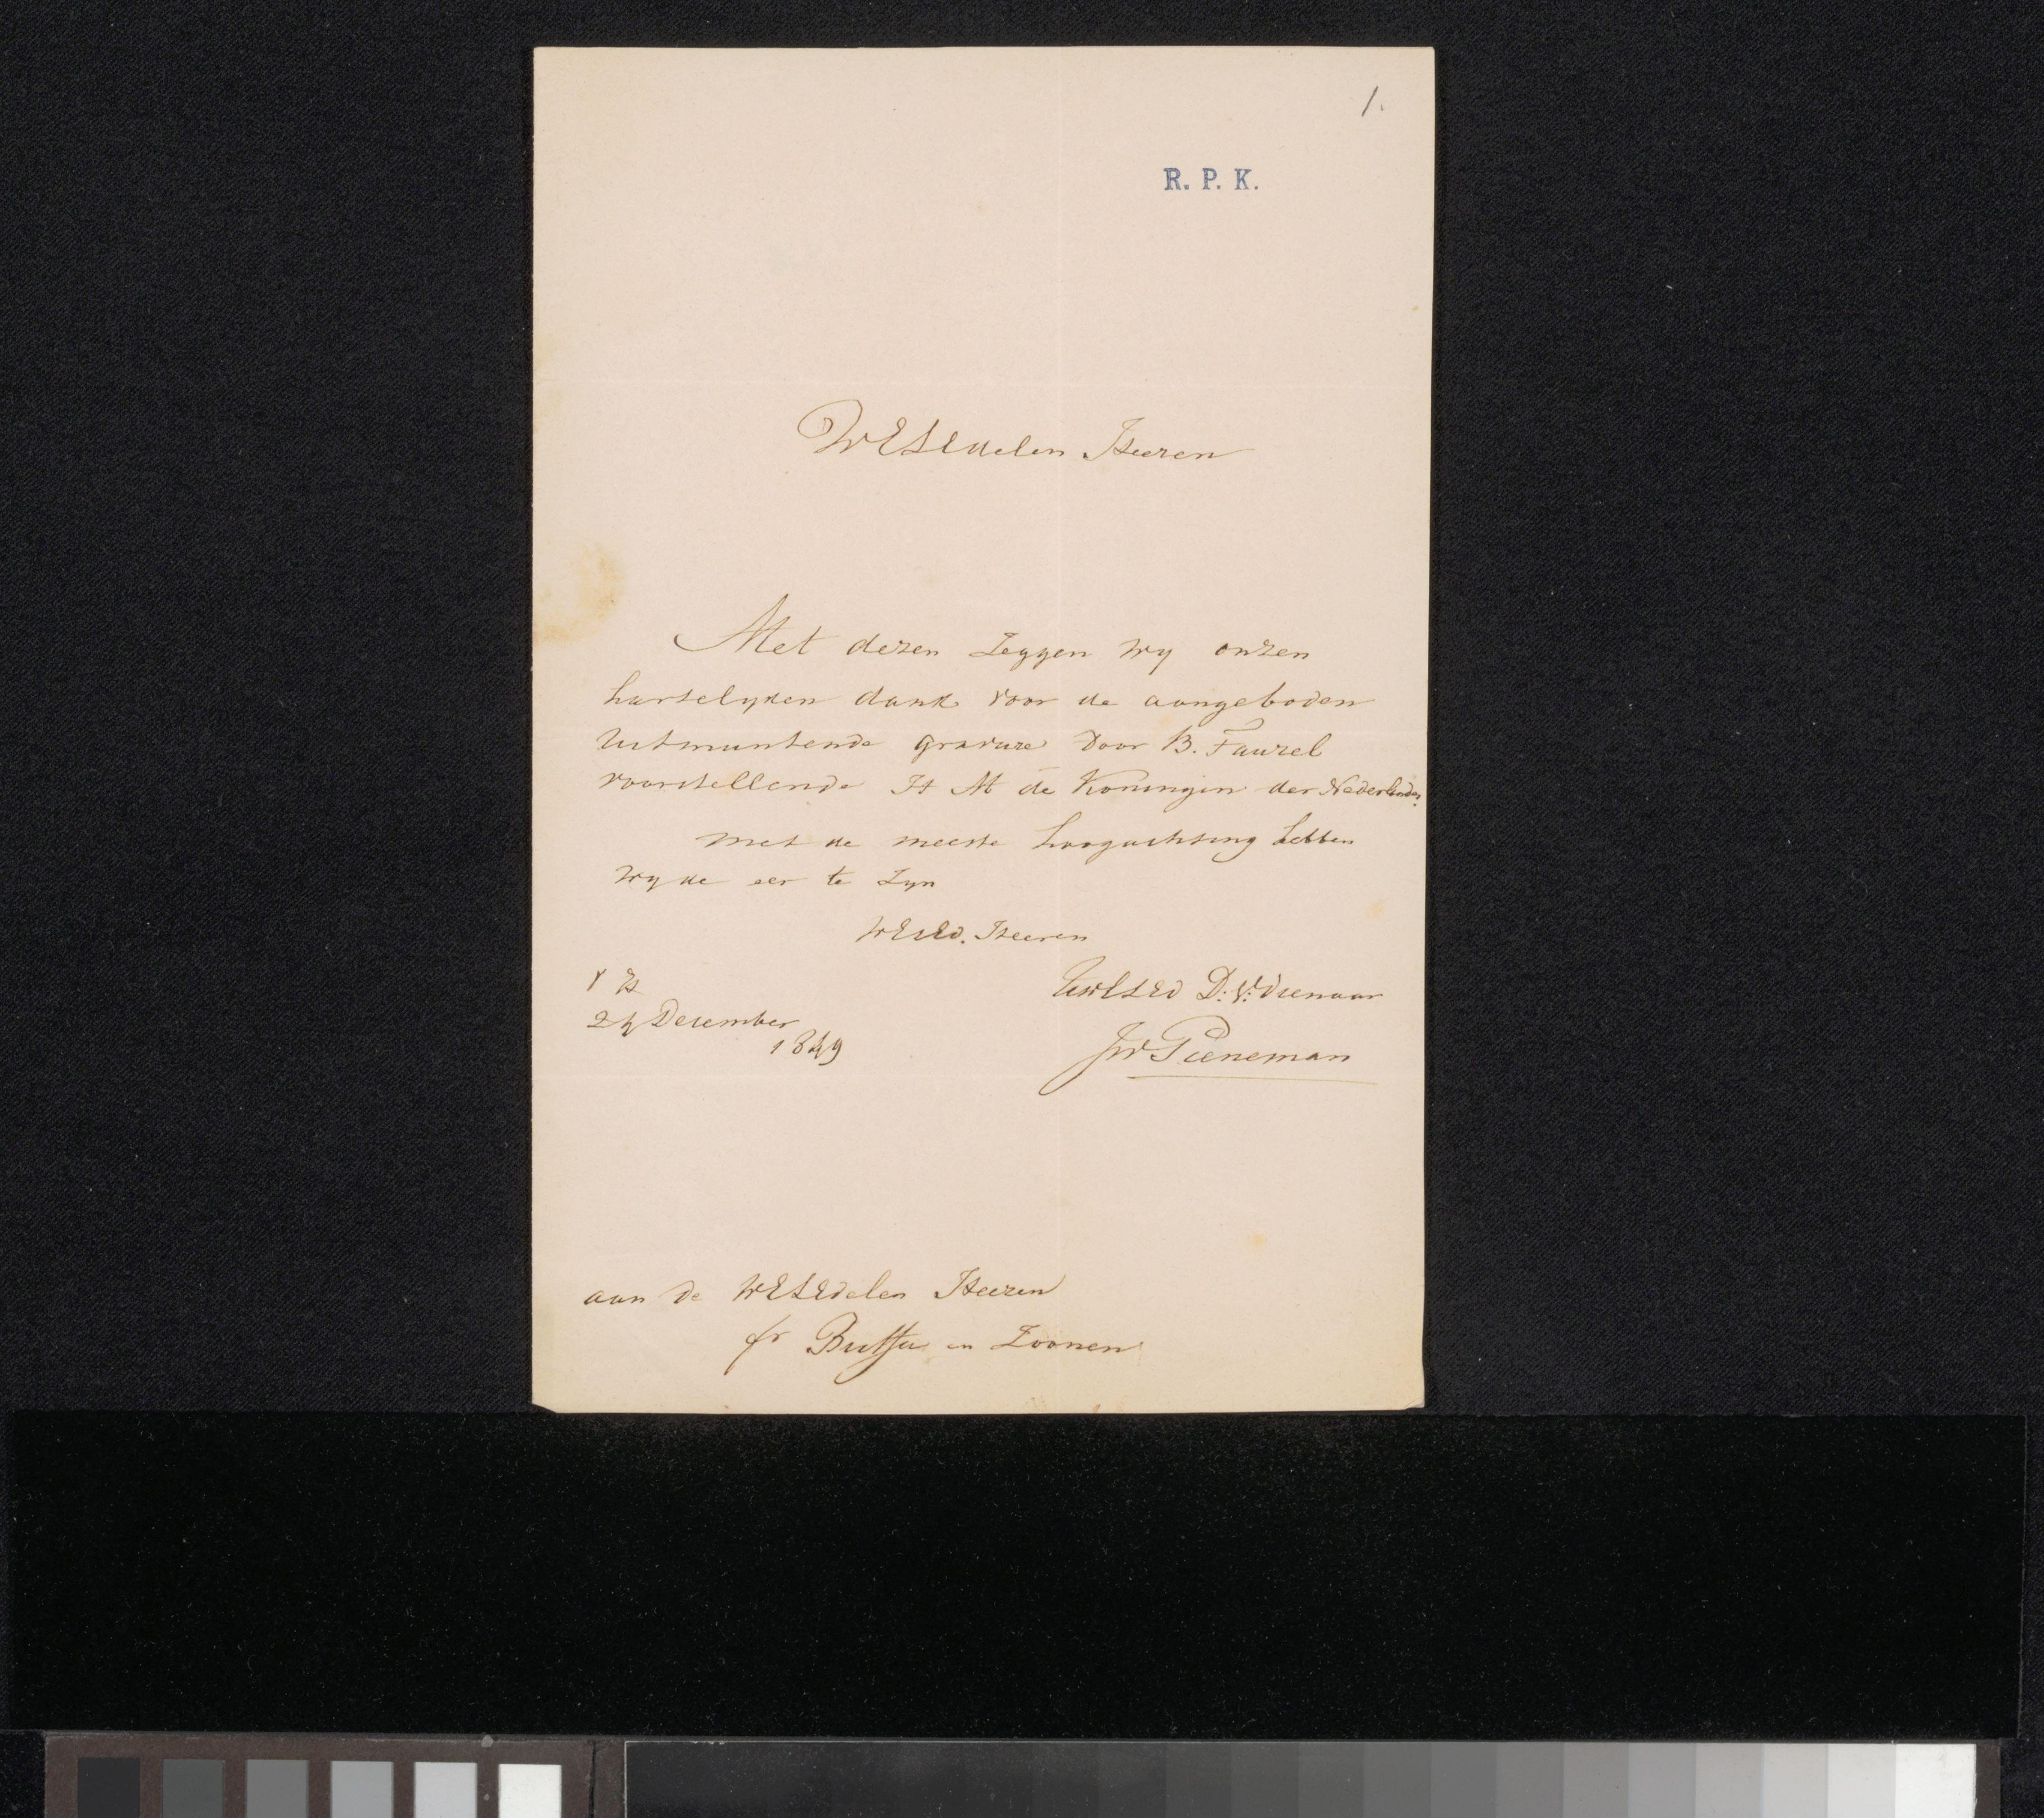 1.
R. P. K.
WELEdelen Heeren
Met dezen Zeggen Wy onzen
hartelyken dank voor de aangeboden
uitmuntende gravure Door B. Tauzel
voorstellende H M de Koningin der Nederlanden.
Met de meeste hoogachting hebben
Wy de eer te Zyn
WELED. Heeren
V H
24 December
1849
UWELED D: V: dienaar
JW Pieneman
aan De WELEdelen Heeren
fr Buffa en Zoonen